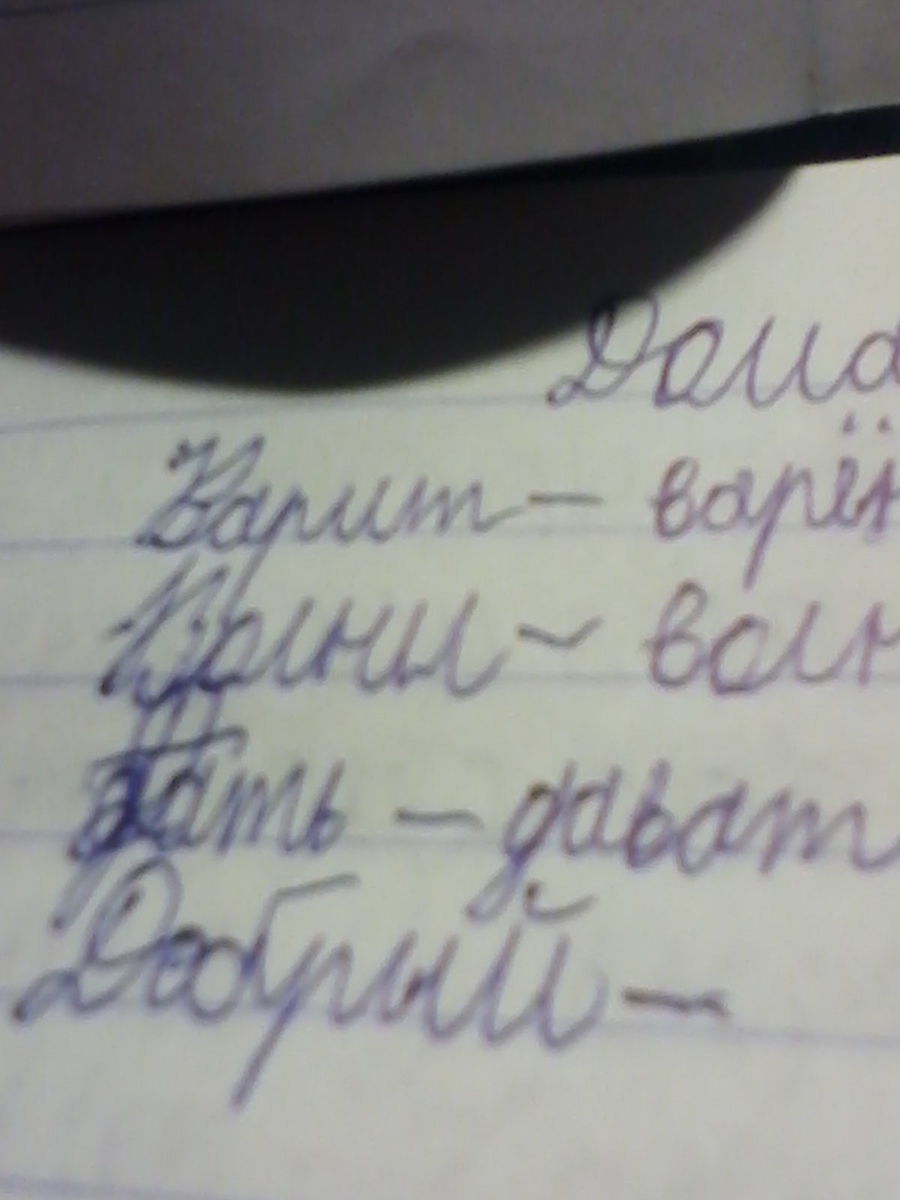 Дома
Варит – варён
Волны – волн
Дать – дават
Добрый –